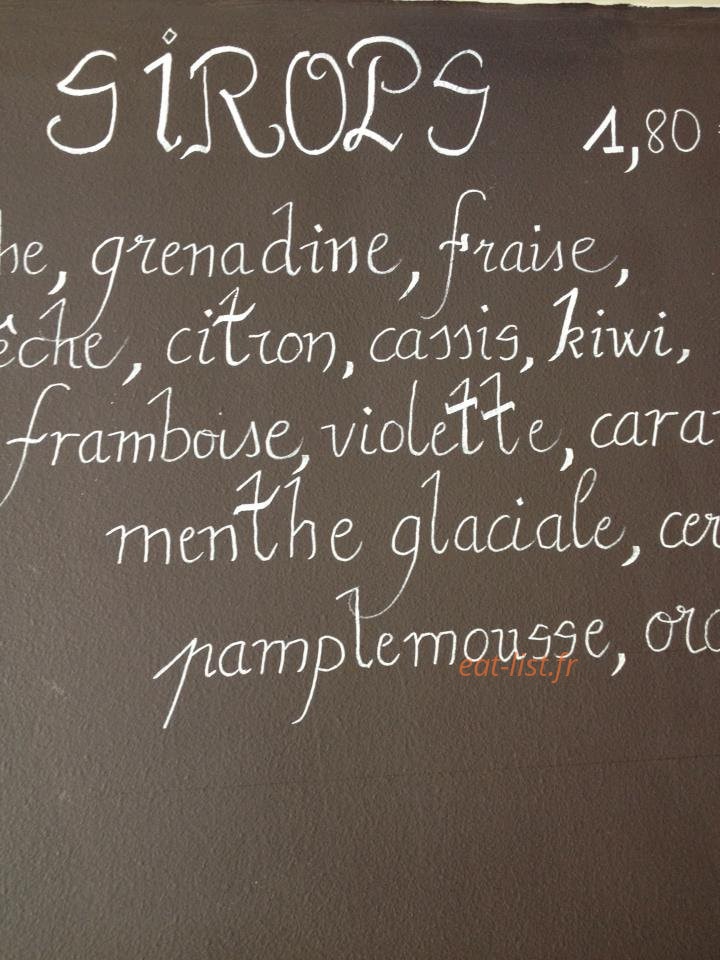 SIROPS 1,80
he, grenadine, fraise,
êche, citron, cassis, kiwi,
framboise, violette, cara
menthe glaciale, cer
pamplemousse, ora
eat-list.fr